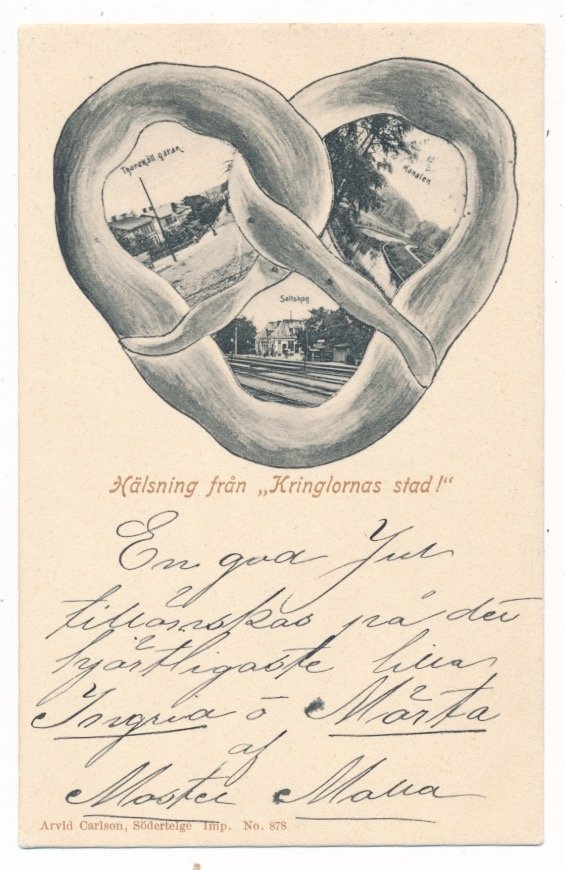 Thorekäll gatan
Kanalen
Saltskog
Hälsning från „Kringlornas stad!“
En god Jul
tillönskas på det
hjärtligaste lilla
Ingrid o Märta
af
Moster Malla
Arvid Carlson, Södertelge Imp. No. 878